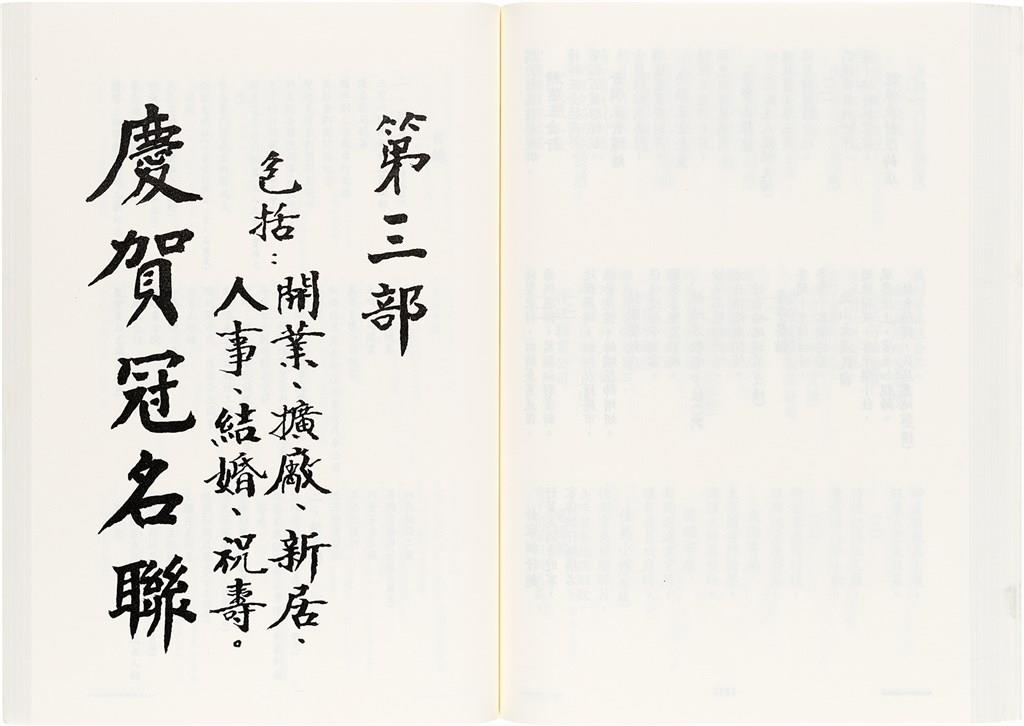 第三部
包括：開業、擴廠、新居、
人事、結婚、祝壽。
慶賀冠名聯